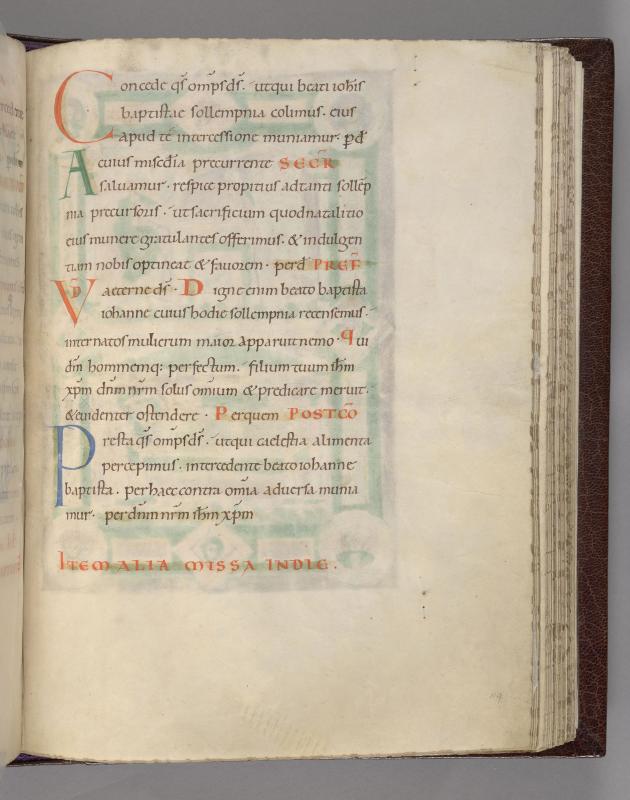 Concede q̄s omp̄s ds̄. ut qui beati ioħis
baptistae sollempnia colimus. eius
apud te intercessione muniamur. p̄ d̄
Ac cuius miscd̄ia precurrente SECR̄
saluamur. respice propitius ad tanti sollēp
nia precursoris. ut sacrificium quod natalitio
eius munere gratulantes offerimus. & indulgen
tiam nobis optineat & fauorem. per d̄ PREF̄
VD̄ aeterne ds̄. Digne enim beato baptista
iohanne cuius hodie sollempnia recensemus.
inter natos mulierum maior apparuit nemo. Qui
dm̄ hominemq; perfectum. filium tuum ih̄m
xp̄m dn̄m nr̄m solus omnium & predicare meruit.
& euidenter ostendere. Per quem POSTCŌ
Presta q̄s omp̄s ds̄. ut qui caelestia alimenta
percepimus. intercedente beato iohanne
baptista. per haec contra om̄ia aduersa munia
mur. per dn̄m nr̄m ih̄m xp̄m
ITEM ALIA MISSA IN DIE.